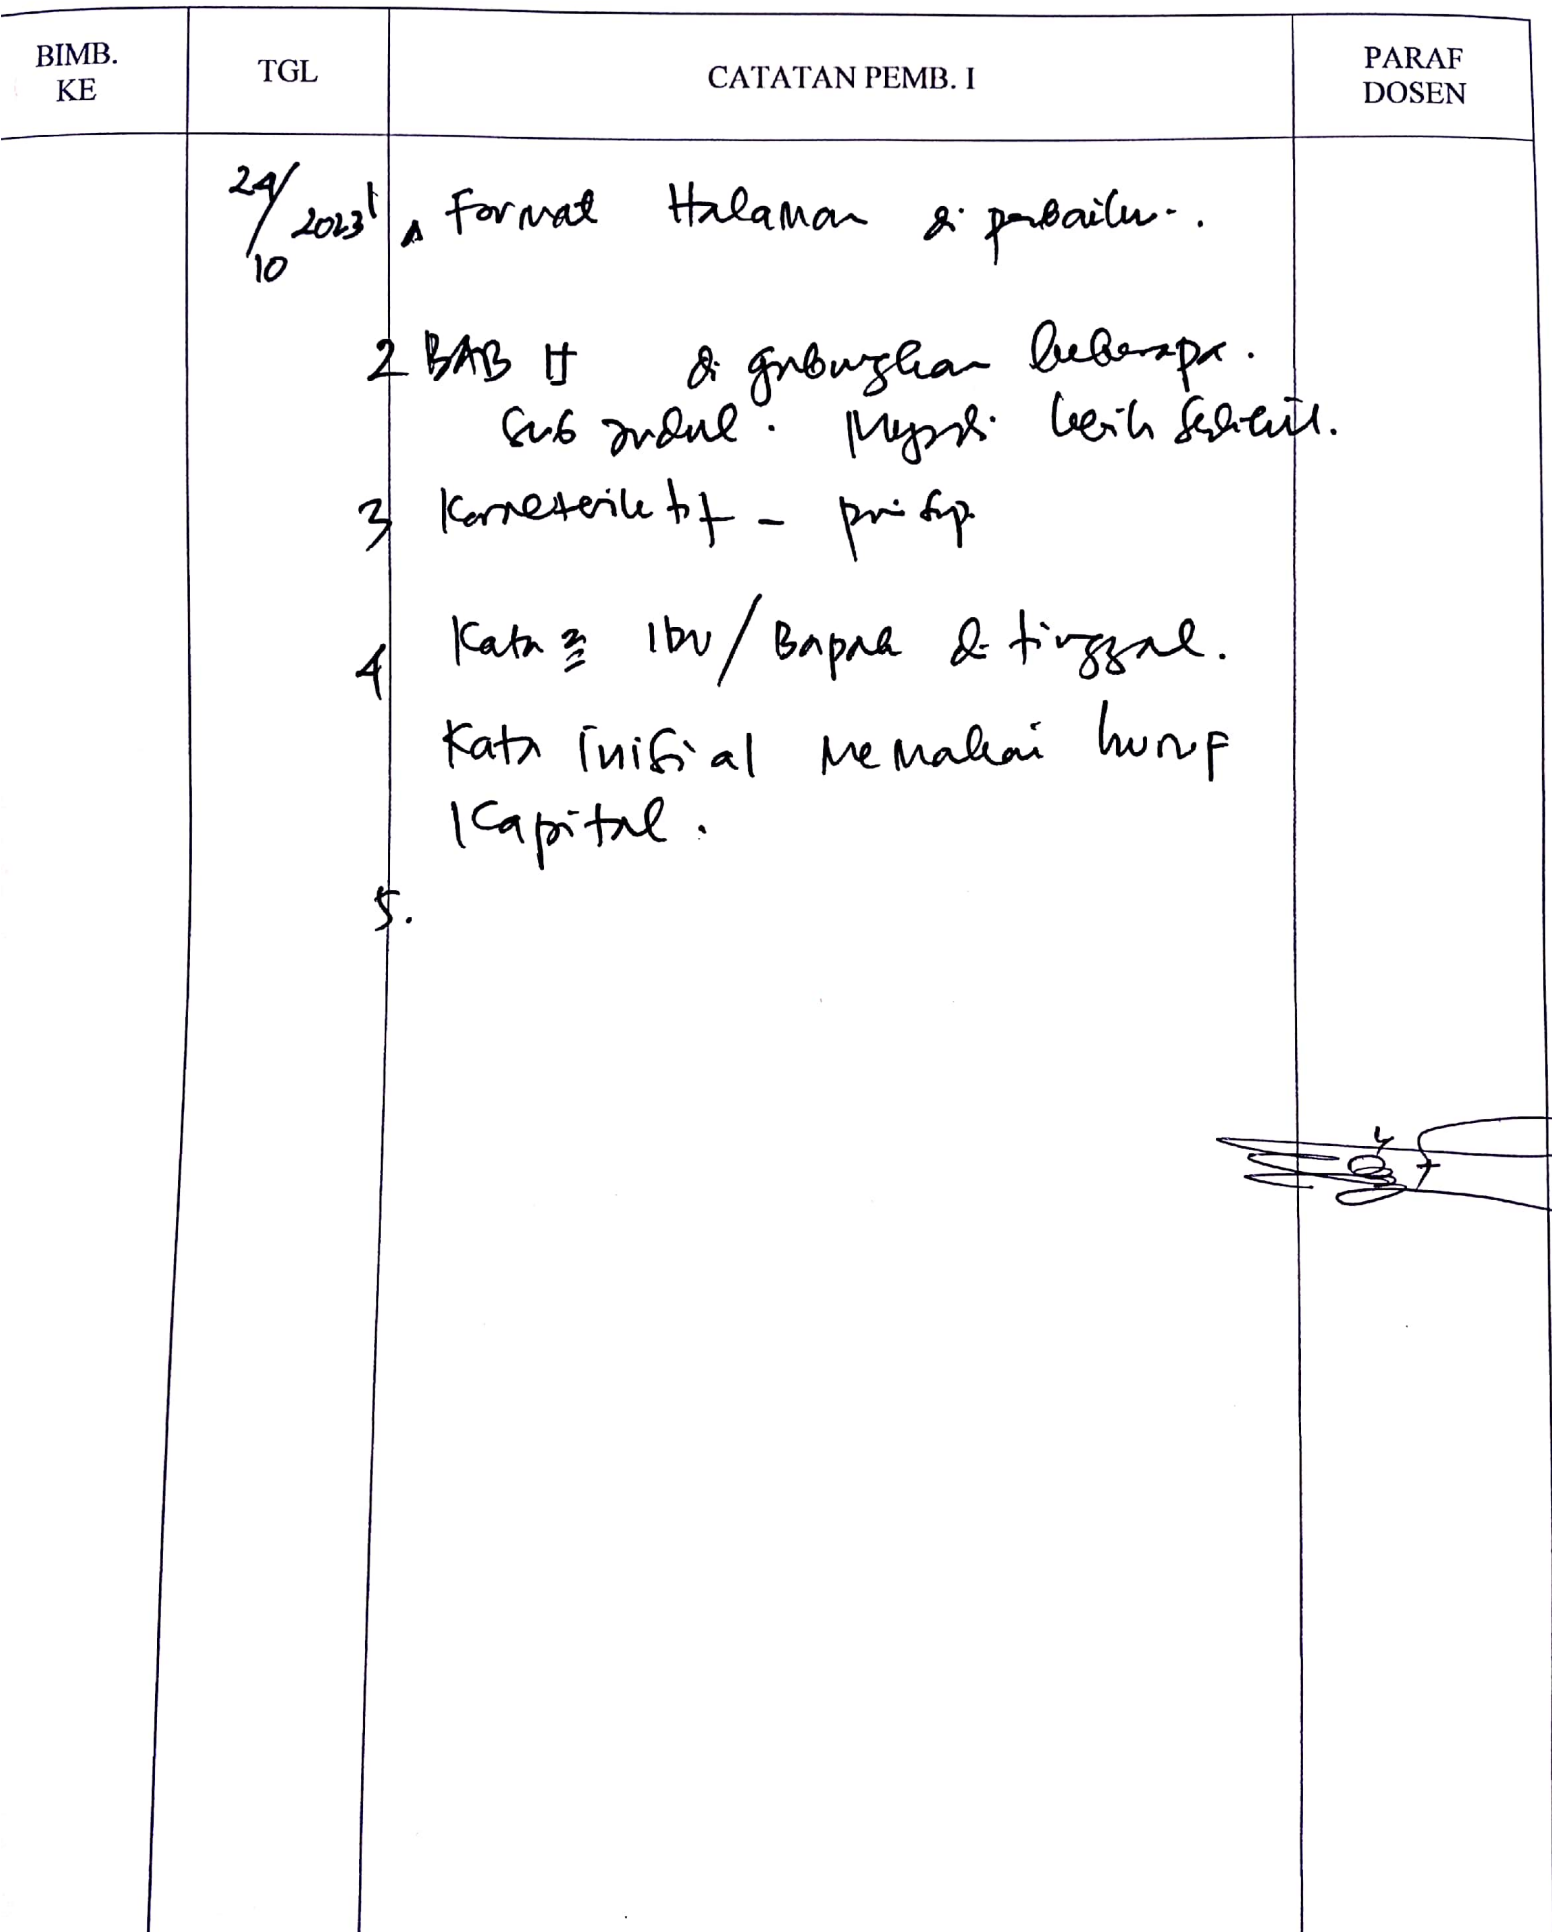 BIMB. KE TGL CATATAN PEMB. I PARAF DOSEN
24/10 2023 1. Format Halaman di perbaiki.
2 BAB II di gabungkan beberapa.
Sub judul. Menjadi lebih sedikit.
3 Karakteristik - prinsip
4 Kata2 Ibu/Bapak di tinggal.
Kata inisial memakai huruf
Kapital.
5.